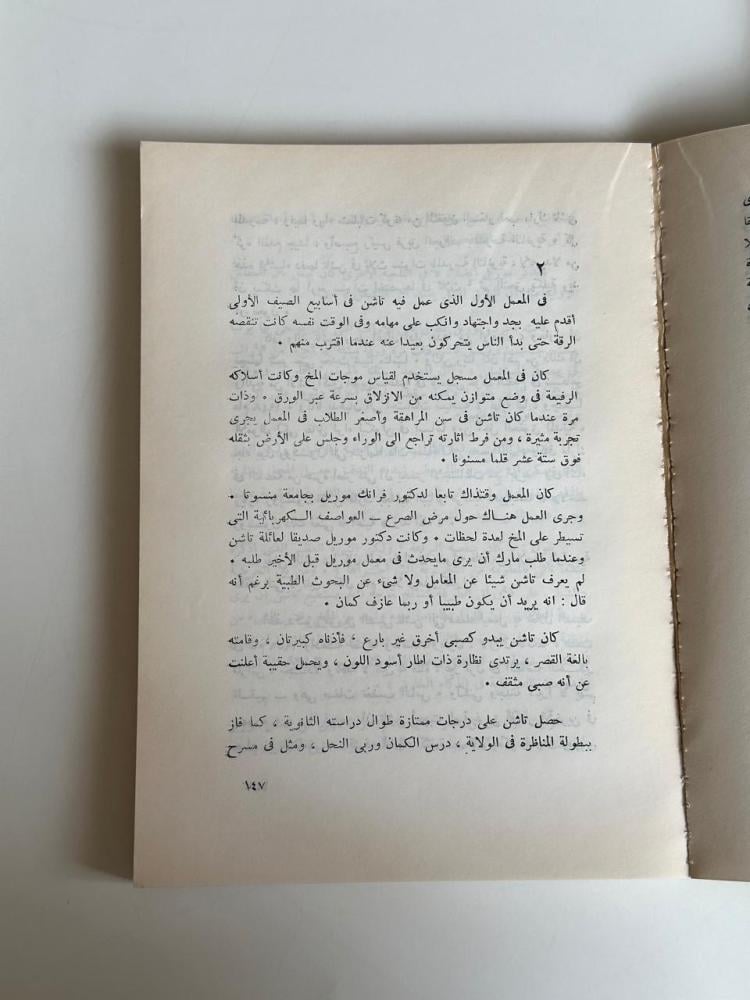 ٢
فى المعمل الأول الذى عمل فيه تاشن فى أسابيع الصيف الأولى
أقدم عليه بجد واجتهاد وانكب على مهامه وفى الوقت نفسه كانت تنقصه
الرقة حتى بدأ الناس يتحركون بعيدا عنه عندما اقترب منهم .
كان فى المعمل مسجل يستخدم لقياس موجات المخ وكانت أسلاكه
الرفيعة فى وضع متوازن يمكنه من الانزلاق بسرعة عبر الورق . وذات
مرة عندما كان تاشن فى سن المراهقة وأصغر الطلاب فى المعمل يجرى
تجربة مثيرة ، ومن فرط اثارته تراجع الى الوراء وجلس على الأرض بثقله
فوق ستة عشر قلما مسنونا .
كان المعمل وقتذاك تابعا لدكتور فرانك موريل بجامعة منسوتا .
وجرى العمل هناك حول مرض الصرع ــ العواصف الكهربائية التى
تسيطر على المخ لعدة لحظات . وكانت دكتور موريل صديقا لعائلة تاشن
وعندما طلب مارك أن يرى مايحدث فى معمل موريل قبل الأخير طلبه .
لم يعرف تاشن شيئا عن المعامل ولا شىء عن البحوث الطبية برغم أنه
قال : انه يريد أن يكون طبيبا أو ربما عازف كمان .
كان تاشن يبدو كصبى أخرق غير بارع ، فأذناه كبيرتان ، وقامته
بالغة القصر ، يرتدى نظارة ذات اطار أسود اللون ، ويحمل حقيبة أعلنت
عن أنه صبى مثقف .
حصل تاشن على درجات ممتازة طوال دراسته الثانوية ، كما فاز
ببطولة المناظرة فى الولاية ، درس الكمان وربى النحل ، ومثل فى مسرح
١٤٧